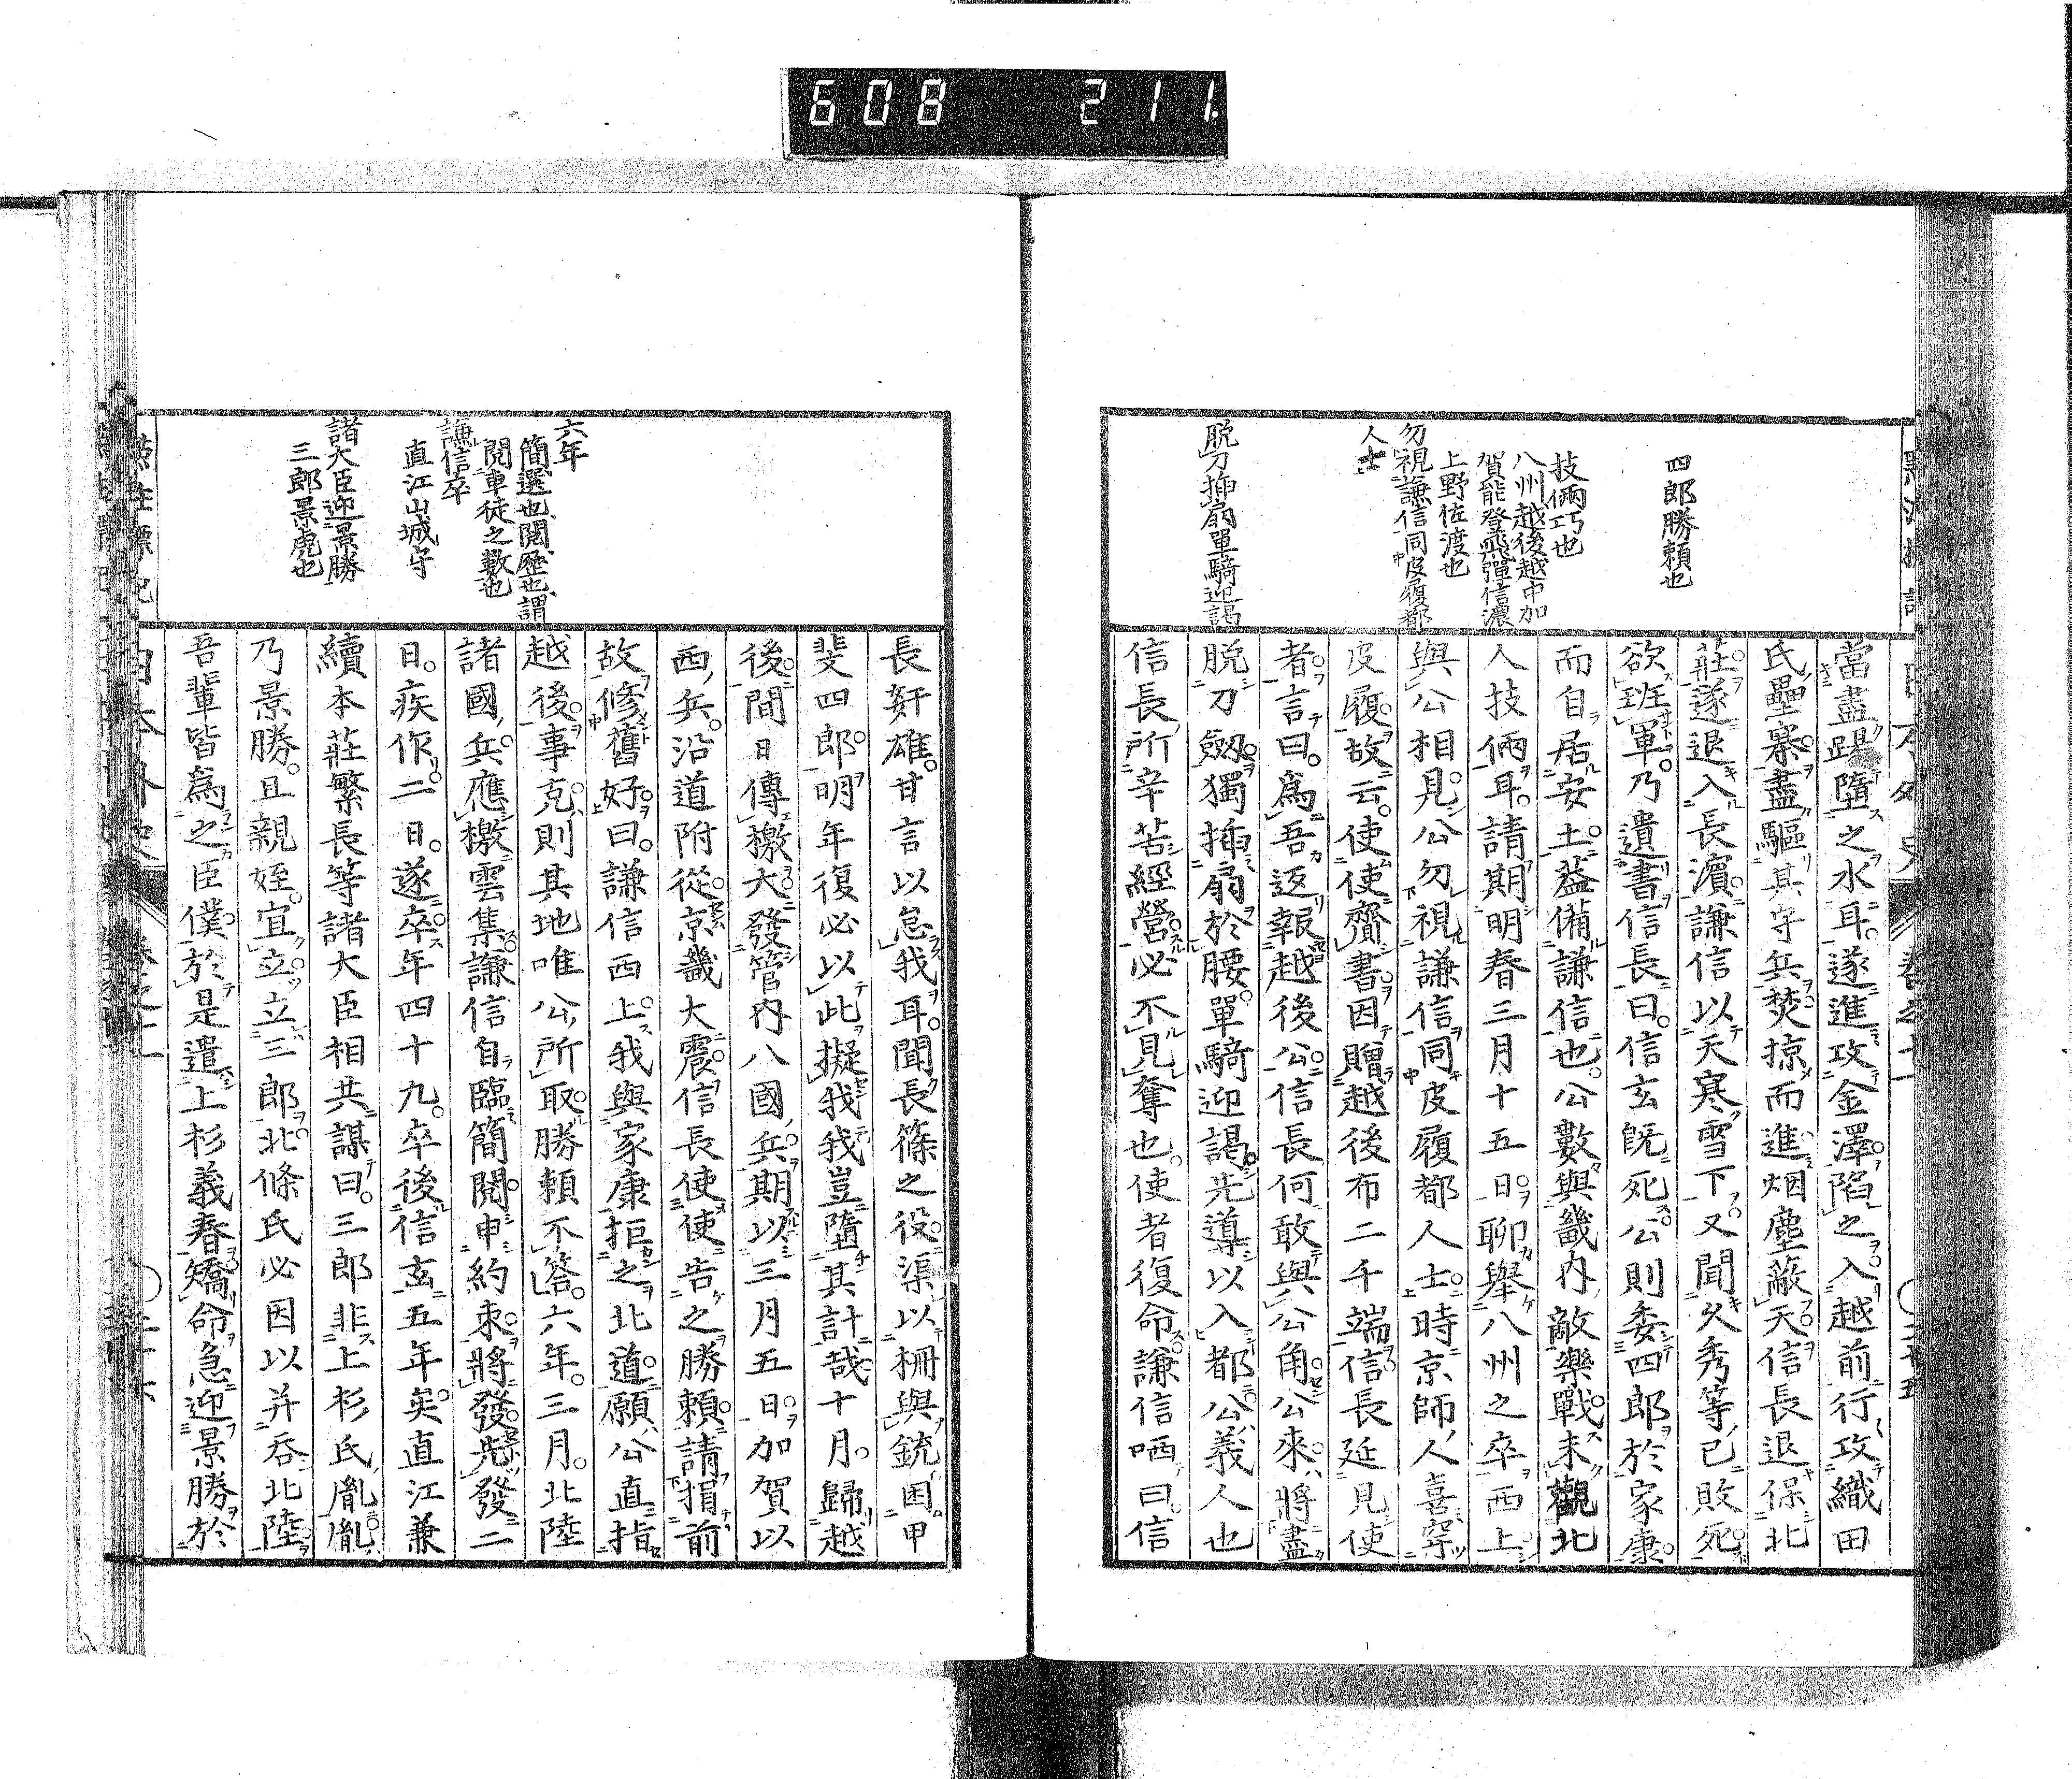 608 211.
四郎勝賴也
技倆巧也
八州越後越中加
賀能登飛彈信濃
上野佐渡也
勿視謙信同皮履都
人士
脫刀挿扇單騎迎謁
當盡踢墮之水耳遂進攻金澤陷之入越前行攻織田
氏壘寨盡驅其守兵焚掠而進烟塵蔽天信長退保北
莊遂退入長濵謙信以天寒雪下又聞久秀等已敗死
欲班軍乃遺書信長曰信玄既死公則委四郎於家康
而自居安土益備謙信也公數與畿內敵樂戰未觀北
人技倆耳請期明春三月十五日聊舉八州之卒西上
與公相見公勿視謙信同皮履都人士時京師人喜穿
皮履故云使使齎書因贈越後布二千端信長延見使
者言曰爲吾返報越後公信長何敢與公角公來將盡
脫刀劔獨挿扇於腰單騎迎謁先導以入都公義人也
信長所辛苦經營必不見奪也使者復命謙信哂曰信
六年
簡選也閱歷也謂
閱車徒之數也
謙信卒
直江山城守
諸大臣迎景勝
三郎景虎也
長姧雄甘言以怠我耳聞長篠之役渠以柵與銃困甲
斐四郎明年復必以此擬我我豈墮其計哉十月歸越
後間日傳檄大發管內八國兵期以三月五日加賀以
西兵沿道附從京畿大震信長使使告之勝賴請捐前
故修舊好曰謙信西上我與家康拒之北道願公直指
越後事克則其地唯公所取勝賴不答六年三月北陸
諸國兵應檄雲集謙信自臨簡閱申約束將發先發二
日疾作二日遂卒年四十九卒後信玄五年矣直江兼
續本莊繁長等諸大臣相共謀曰三郎非上杉氏胤胤
乃景勝且親姪宜立立三郎北條氏必因以并吞北陸
吾輩皆爲之臣僕於是遣上杉義春矯命急迎景勝於